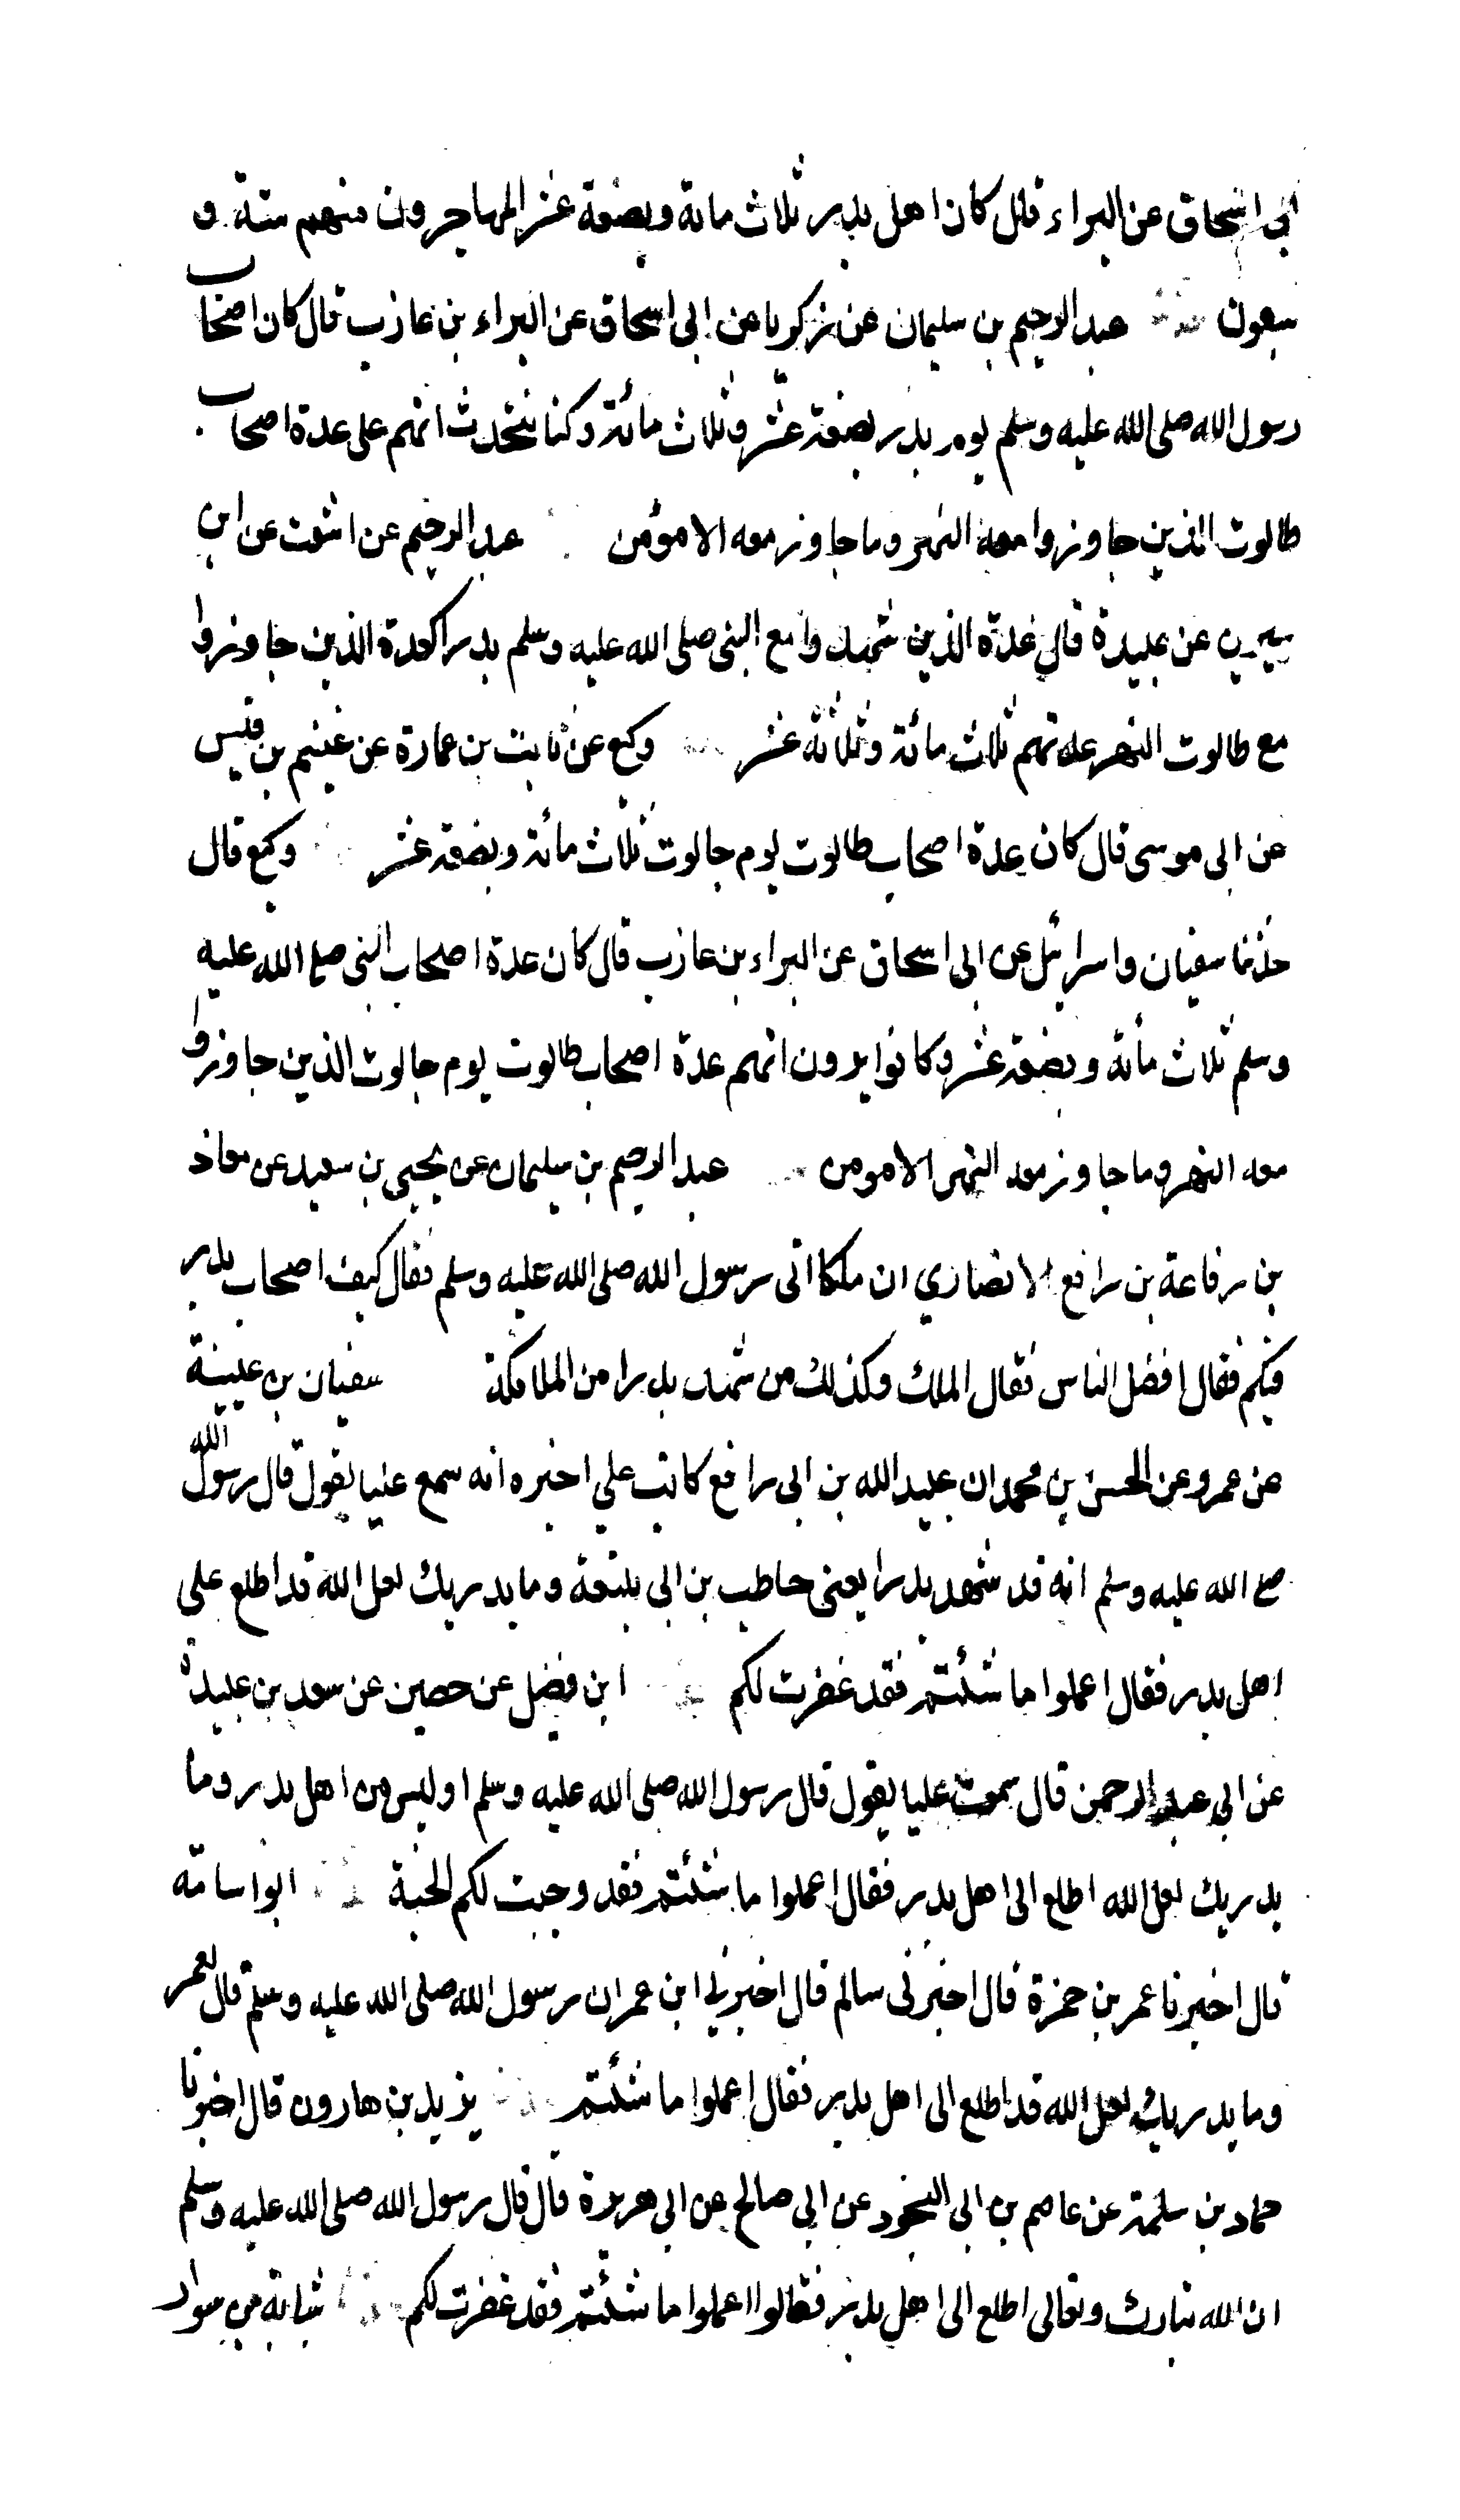 ابى اسحاق عن البراء قال كان اهل بدر ثلاث مائة وبضعة عشر المهاجرون منهم ستة و
سبعون عبد الرحيم بن سليمان عن زكريا عن ابى اسحاق عن البراء بن عازب قال كان اصحاب
رسول الله صلى الله عليه وسلم يوم بدر بضعة عشر وثلاث مائة وكنا نتحدث انهم على عدة اصحاب
طالوت الذين جاوزوا معه النهر وما جاوز معه الا مؤمن عبد الرحيم عن اشعث عن ابن
سيرين عن عبيدة قال عدة الذين شهدوا مع النبى صلى الله عليه وسلم بدرا كعدة الذين جاوزوا
مع طالوت النهر عدتهم ثلاث مائة وثلاثة عشر وكيع عن ثابت بن عمارة عن غنيم بن قيس
عن ابى موسى قال كان عدة اصحاب طالوت يوم جالوت ثلاث مائة وبضعة عشر وكيع قال
حدثنا سفيان واسرائل عن ابى اسحاق عن البراء بن عازب قال كان عدة اصحاب النبى صلع الله عليه
وسلم ثلاث مائة وبضعة عشر وكانوا يرون انهم عدة اصحاب طالوت يوم جالوت الذين جاوزوا
معه النهر وما جاوز معه النهر الا مومن عبد الرحيم بن سليمان عن يحيى بن سعيد عن معاذ
بن رفاعة بن رافع الانصاري ان ملكا اتى رسول الله صلى الله عليه وسلم فقال كيف اصحاب بدر
فيكم فقال افضل الناس فقال الملك وكذلك من شهد بدرا من الملائكة سفيان بن عيينة
عن عمرو عن الحسن بن محمد ان عبيد الله بن ابى رافع كاتب علي اخبره انه سمع عليا يقول قال رسول الله
صلع الله عليه وسلم انه قد شهد بدرا يعنى حاطب بن ابى بلتعة وما يدريك لعل الله قد اطلع على
اهل بدر فقال اعملوا ما شئتم فقد غفرت لكم ابن فضيل عن حصين عن سعد بن عبيدة
عن ابى عبد الرحمن قال سمعت عليا يقول قال رسول الله صلى الله عليه وسلم اوليس من اهل بدر وما
يدريك لعل الله اطلع الى اهل بدر فقال اعملوا ما شئتم فقد وجبت لكم الجنة ابو اسامة
قال اخبرنا عمر بن حمزة قال اخبرنى سالم قال اخبرني ابن عمر ان رسول الله صلى الله عليه وسلم قال لعمر
وما يدريك لعل الله قد اطلع الى اهل بدر فقال اعملوا ما شئتم يزيد بن هارون قال اخبرنا
حماد بن سلمة عن عاصم بن ابى النجود عن ابى صالح عن ابى هريرة قال قال رسول الله صلى الله عليه وسلم
ان الله تبارك وتعالى اطلع الى اهل بدر فقالوا اعملوا ما شئتم فقد غفرت لكم شبابة بن سوار